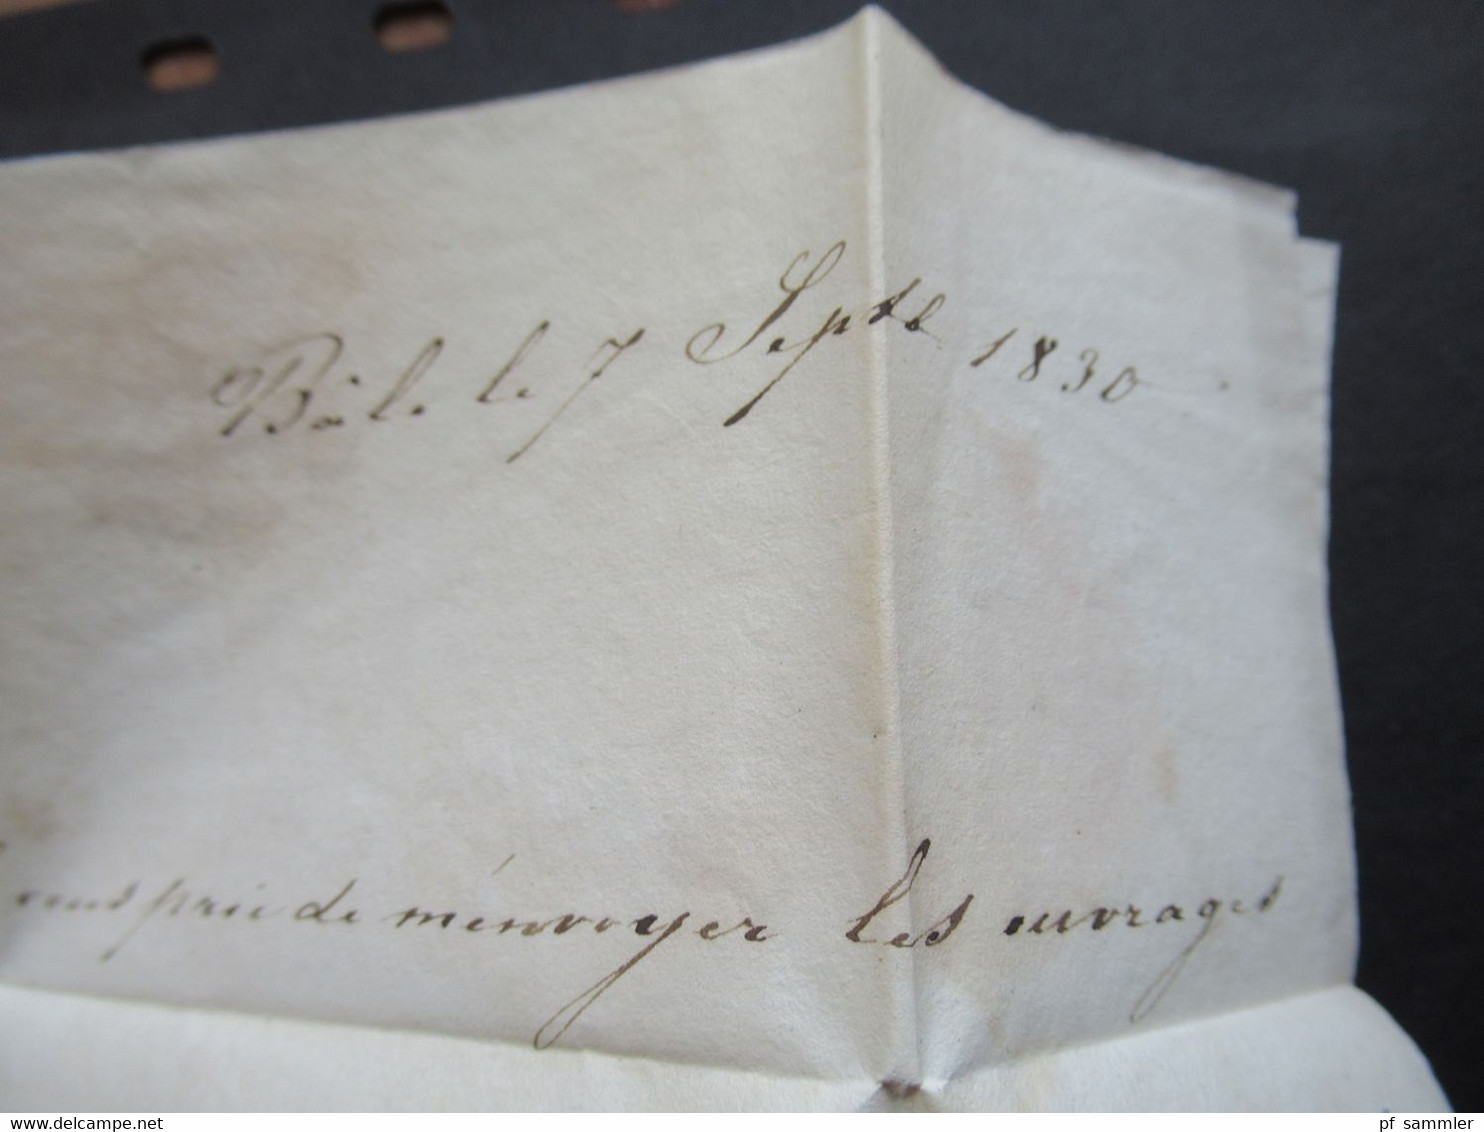 Bâle le 7 Septe 1830
vous prie de m'envoyer les ouvrages
www.delcampe.net
pf_sammler